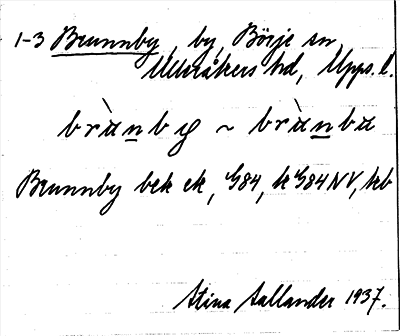 1-3 Brunnby, by, Börje sn,
Ulleråkers hd, Upps. l.
brùnby ~ brùnba
Brunnby bek ek, G84, k G84 NV, hb
Stina Sallander 1937.